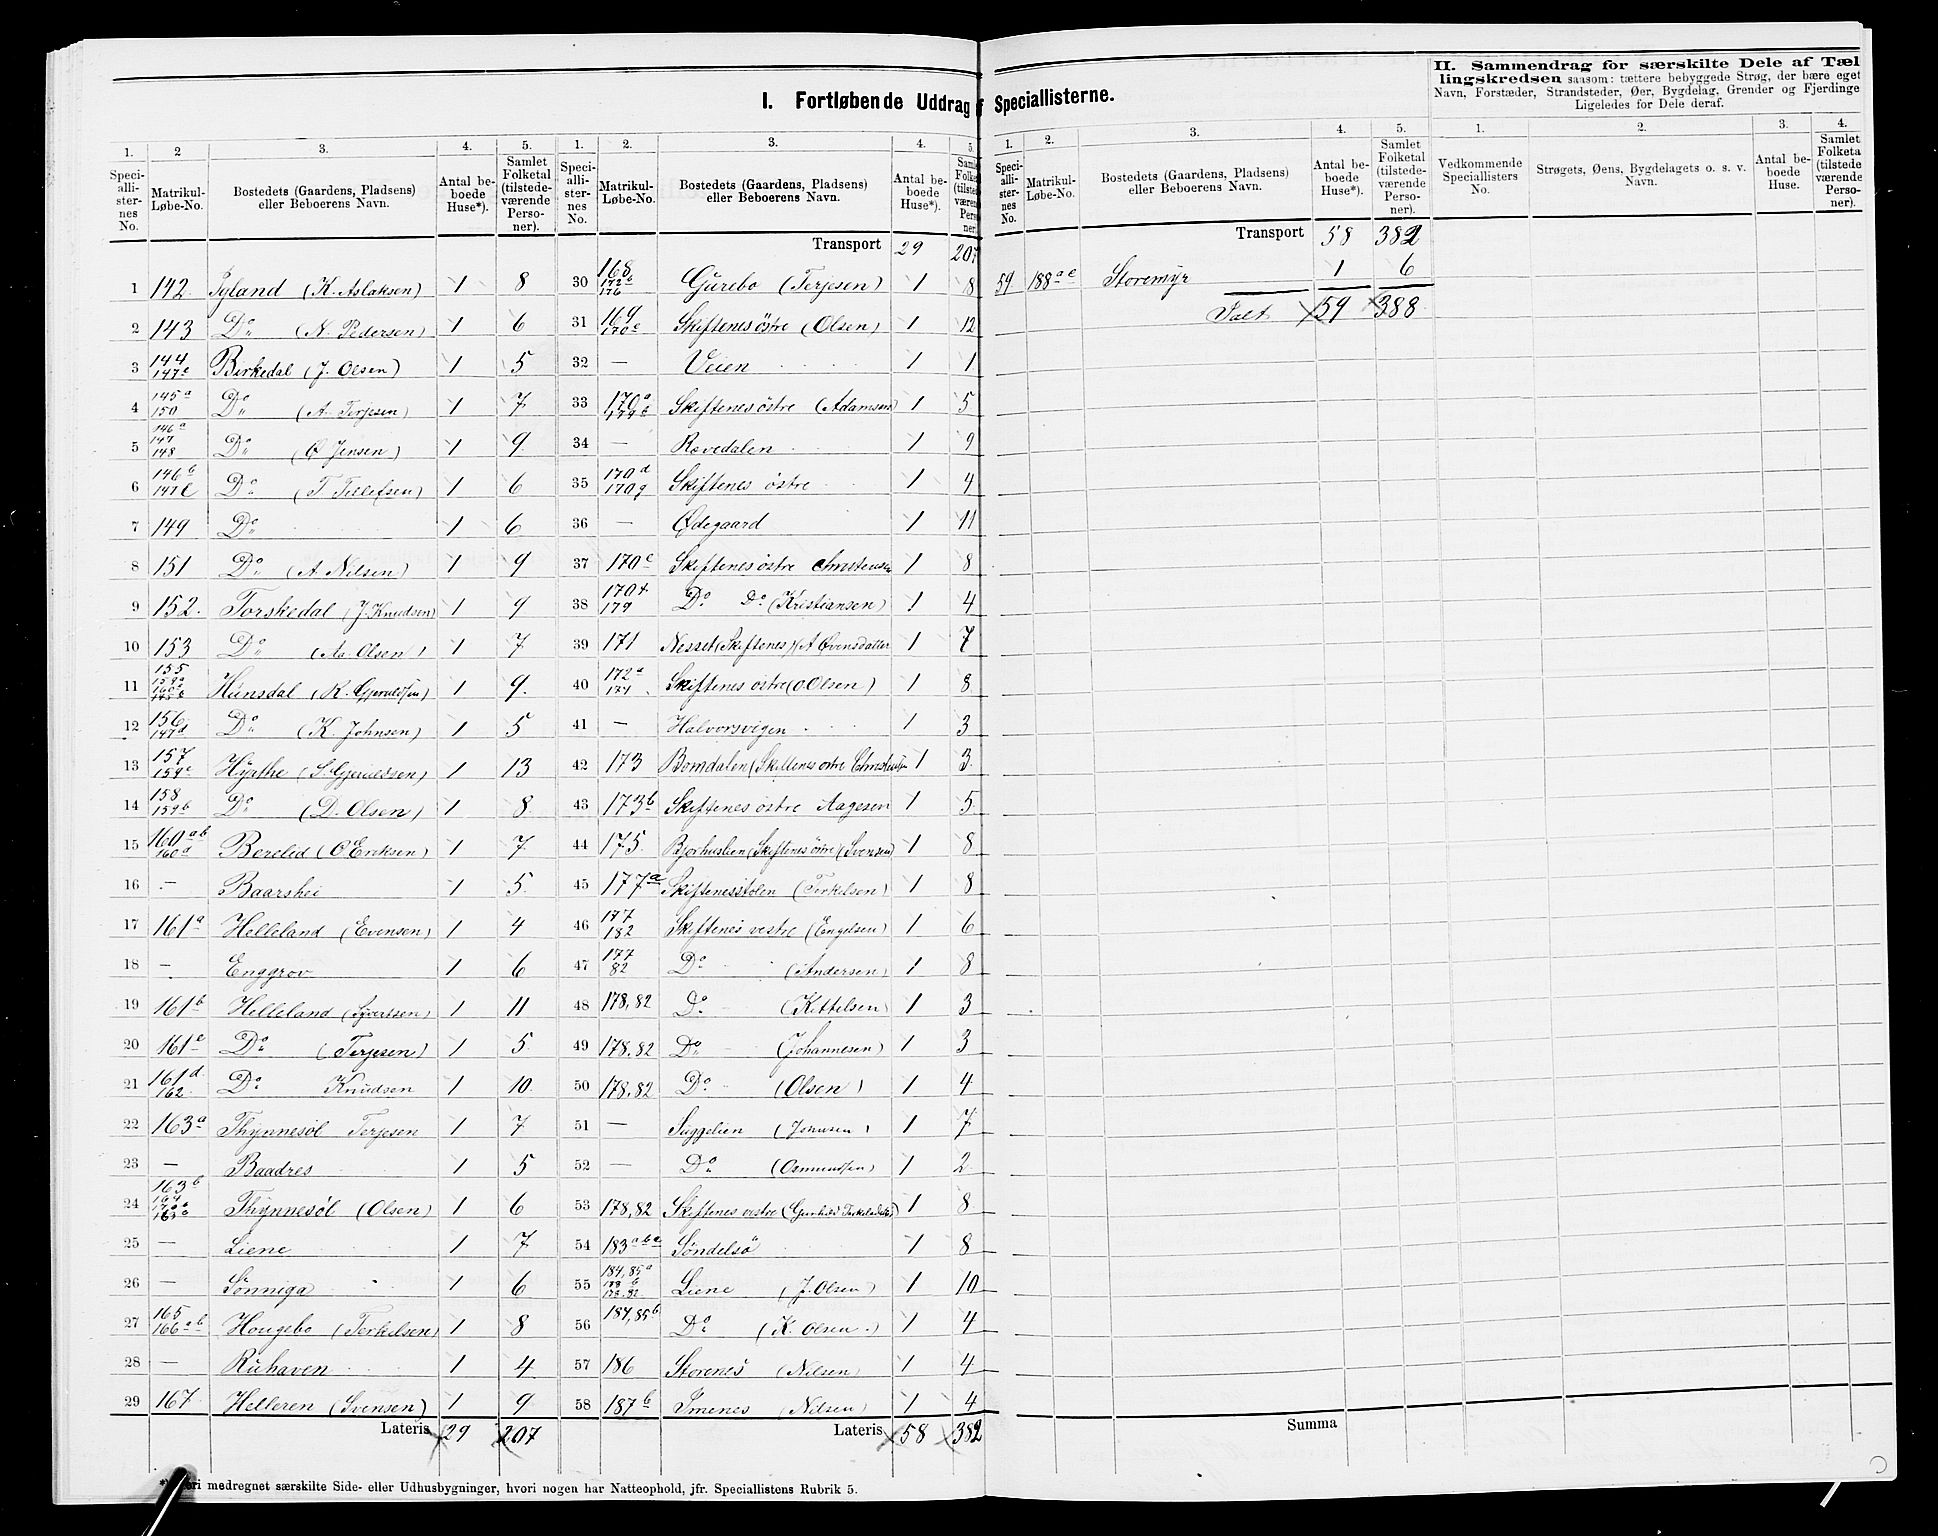 I. Fortløbende Uddrag f Speciallisterne.
1. 2 3. 4. 5.
Speciallisternes No. Matrikul-Løbe-No. Bostedets (Gaardens, Pladsens) eller Beboerens Navn. Antal beboede Huse*). Samlet Folketal (tilstedeværende Personer).
1 142 (K. Aslaksen) 1 8
2 143 Do (N. Pedersen) 1 6
3 144 147c Birkedal (J. Olsen) 1 5
4 145a 150 Do (A. Terjesen) 1 7
5 146a 147 148 Do (O Jensen) 1 9
6 146b Do (T Tellefsen) 1 6
7 149 Do 1 6
8 151 Do (A Nilsen) 1 9
9 152. Torskedal (J. Knudsen) 1 9
10 153 Do (Aa. Olsen) 1 7
11 155 Hunsdal 1 9.
12 156 147d Do (K. Johnsen) 1 5
13 157 159c 1 13
14 158 159b Do (D. Olsen) 1 8
15 160ab 160d Berelid (O Eriksen) 1 7
16 – Baarshei 1 5
17 161a Helleland (Evensen) 1 4
18 – Enggrov 1 6
19 161b Helleland (Syvertsen) 1 11
20 161c Do (Terjesen) 1 5
21 161d 162 Do Knudsen 1 10
22 163a Thynnesøl Terjesen 1 7
23 – Baadres 1 5
24 163b Thynnesøl (Olsen) 1 6
25 – Liene 1 7
26 – Sønniga 1 6
27 165 166ab Hougebo (Terkelsen) 1 8
28 – Ruhaven 1 4
29 167 Helleren (Svensen) 1 9
Lateris 29 207
1. 2. 3. 4. 5.
Speciallisternes No. Matrikul-Løbe-No. Bostedets (Gaardens, Pladsens) eller Beboerens Navn. Antal beboede Huse*).
Transport 29 207
30 168 172c 176 Gurebo (Terjesen) 1 8
31 169 170c Skiftenes østre (Olsen) 1 12
32 – Veien 1 1
33 170a Skiftenes østre (Adamsen) 1 5
34 – Rovedalen 1 9
35 170d 170g Skiftenes østre 1 4
36 – Ødegaard 1 11
37 170e Skiftenes østre Christensen 1 8
38 170f 179 Do Do (Kristiansen) 1 4
39 171 Nesset (Skiftenes) (A Øvensdatter 1 7
40 172a 174 Skiftenes østre (O. Olsen) 1 8
41 – Halvorsvigen 1 3
42 173 Bomdalen (Skiftenes østre 1 3
43 173b Skiftenes østre Aagesen 1 5
44 175 Bjorhuslien (Skiftenes østre (Svensen) 1 8
45 177a Skiftenesstolen (Terkelsen) 1 8
46 177 182 Skiftenes vestre (Engelsen) 1 6
47 177 82 Do (Andersen) 1 8
48 178,82 Do (Kittelsen) 1 3
49 178.82 Do (Johannesen) 1 3
50 178.82 Do (Olsen) 1 4
51 – Suggelien (Johnsen) 1 7
52 – Do (Osmundsen) 1 2
53 178,82 Skiftenes vestre (Gunhild Terkelsdatter) 1 8
54 183abc Søndelsø 1 8
55 184,85a 178b 178.82 Liene (J. Olsen) 1 10
56 184,85b Do (K. Olsen.) 1 4
57 186 Storenes (Nilsen) 1 4
58 187b Imenes (Nilsen) 1 4
Lateris 58 382
*) Heri medregnet særskilte Side- eller Udhusbygninger, hvori nogen har Natteophold, jfr. Speciallistens Rubrik 5.
1. 2. 3. 4. 5.
Speciallisternes No. Matrikul-Løbe-No. Bostedets (Gaardens, Pladsens) eller Beboerens Navn. Antal beboede Huse*). Samlet Folketal (tilstedeværende Personer).
Transport 58 382
59 188ae Storemyr 1 6
Ialt 59 388
Summa
II. Sammendrag for særskilte Dele af Tæl
lingskredsen saasom: tættere bebyggede Strøg, der bære eget
Navn, Forstæder, Strandsteder, Øer, Bygdelag, Grender og Fjerdinge
Ligeledes for Dele deraf.
1. 2. 3. 4.
Vedkommende Speciallisters No. Strøgets, Øens, Bygdelagets o. s. v. Navn. Antal beboede Huse. Samlet Folketa (tilstede værende Personer)